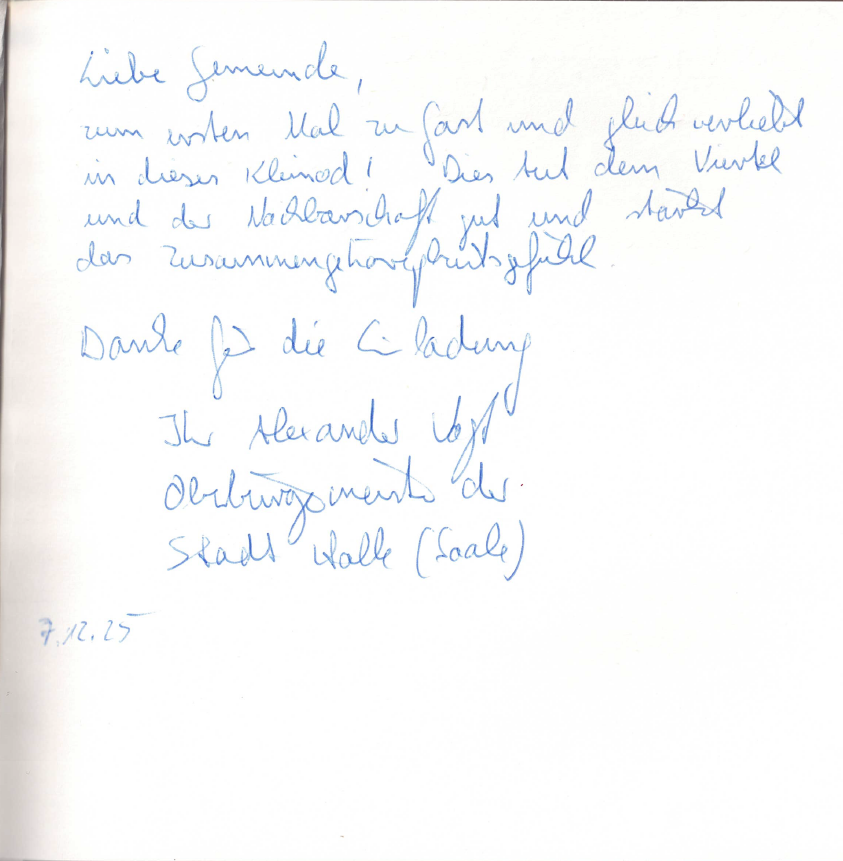 Liebe Gemeinde,
zum ersten Mal zu Gast und gleich verliebt
in dieses Kleinod! Dies tut dem Viertel
und der Nachbarschaft gut und stärkt
das Zusammengehörigkeitsgefühl.
Danke für die Einladung
Ihr Alexander Vogt
Oberbürgermeister der
Stadt Halle (Saale)
7.12.25